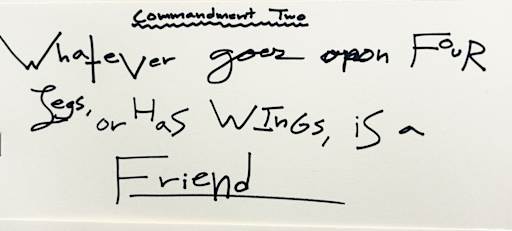 Commandment Two
Whatever goes upon FouR
Legs, or Has WInGs, is a
Friend